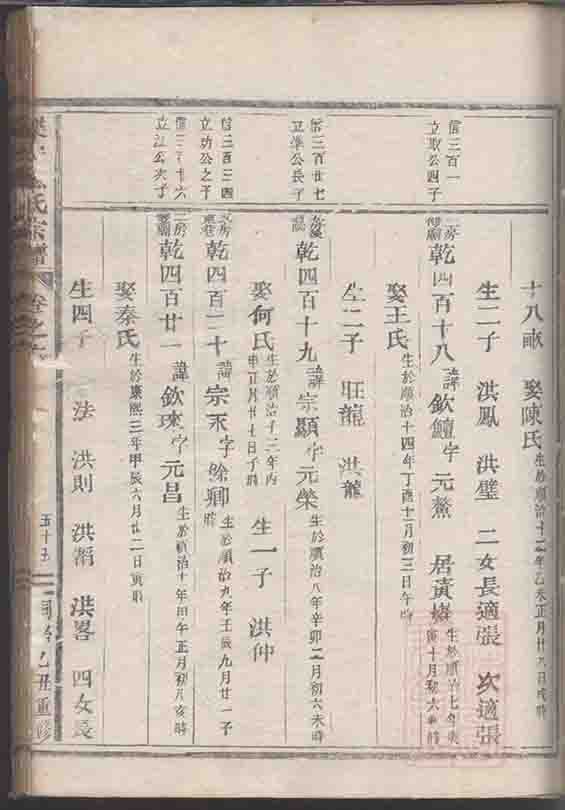 十八畝 娶陳氏 生於順治十二年乙未正月廿九日戌時
生二子 洪鳳 洪璧 二女長適張 次適張
信三百一
立取公四子
乾四百十八 諱欽鱣字元鰲 居黃
生於順治七年庚寅十月初六
娶王氏 生於順治十四年丁酉十一月初三日午時
生二子 旺龍 洪龍
信三百廿七
立準公長子
乾四百十九 諱宗顯字元榮 生於順治八年辛卯二月初六未時
娶何氏 生於順治十三年丙申正月廿七日子時 生一子 洪仲
信三百三四
立功公之子
乾四百二十 諱宗禾字徐卿 生於順治九年壬辰九月廿一子時
信三百三十六
立江公次子
乾四百廿一 諱欽琜字元昌 生於順治十一年甲午正月初八亥時
娶秦氏 生於康熙三年甲辰六月廿二日寅時
生四子 法 洪則 洪㨨 洪畧 四女長
氏宗譜 卷之
五十五
同治乙丑重修